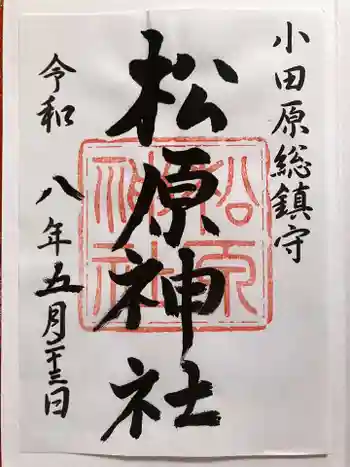 小田原総鎮守
松原神社
令和八年五月二十三日
松原神社